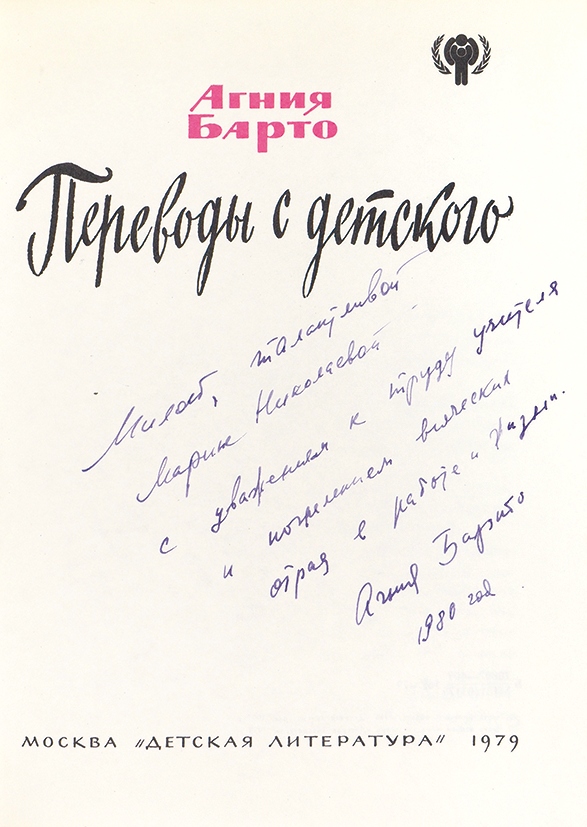 Агния
Барто
Переводы с детского
Милой, талантливой
Марине Николаевой
с уважением к труду учителя
и пожеланием всяческих
отрад в работе и жизни.
Агния Барто
1980 год
МОСКВА "ДЕТСКАЯ ЛИТЕРАТУРА" 1979